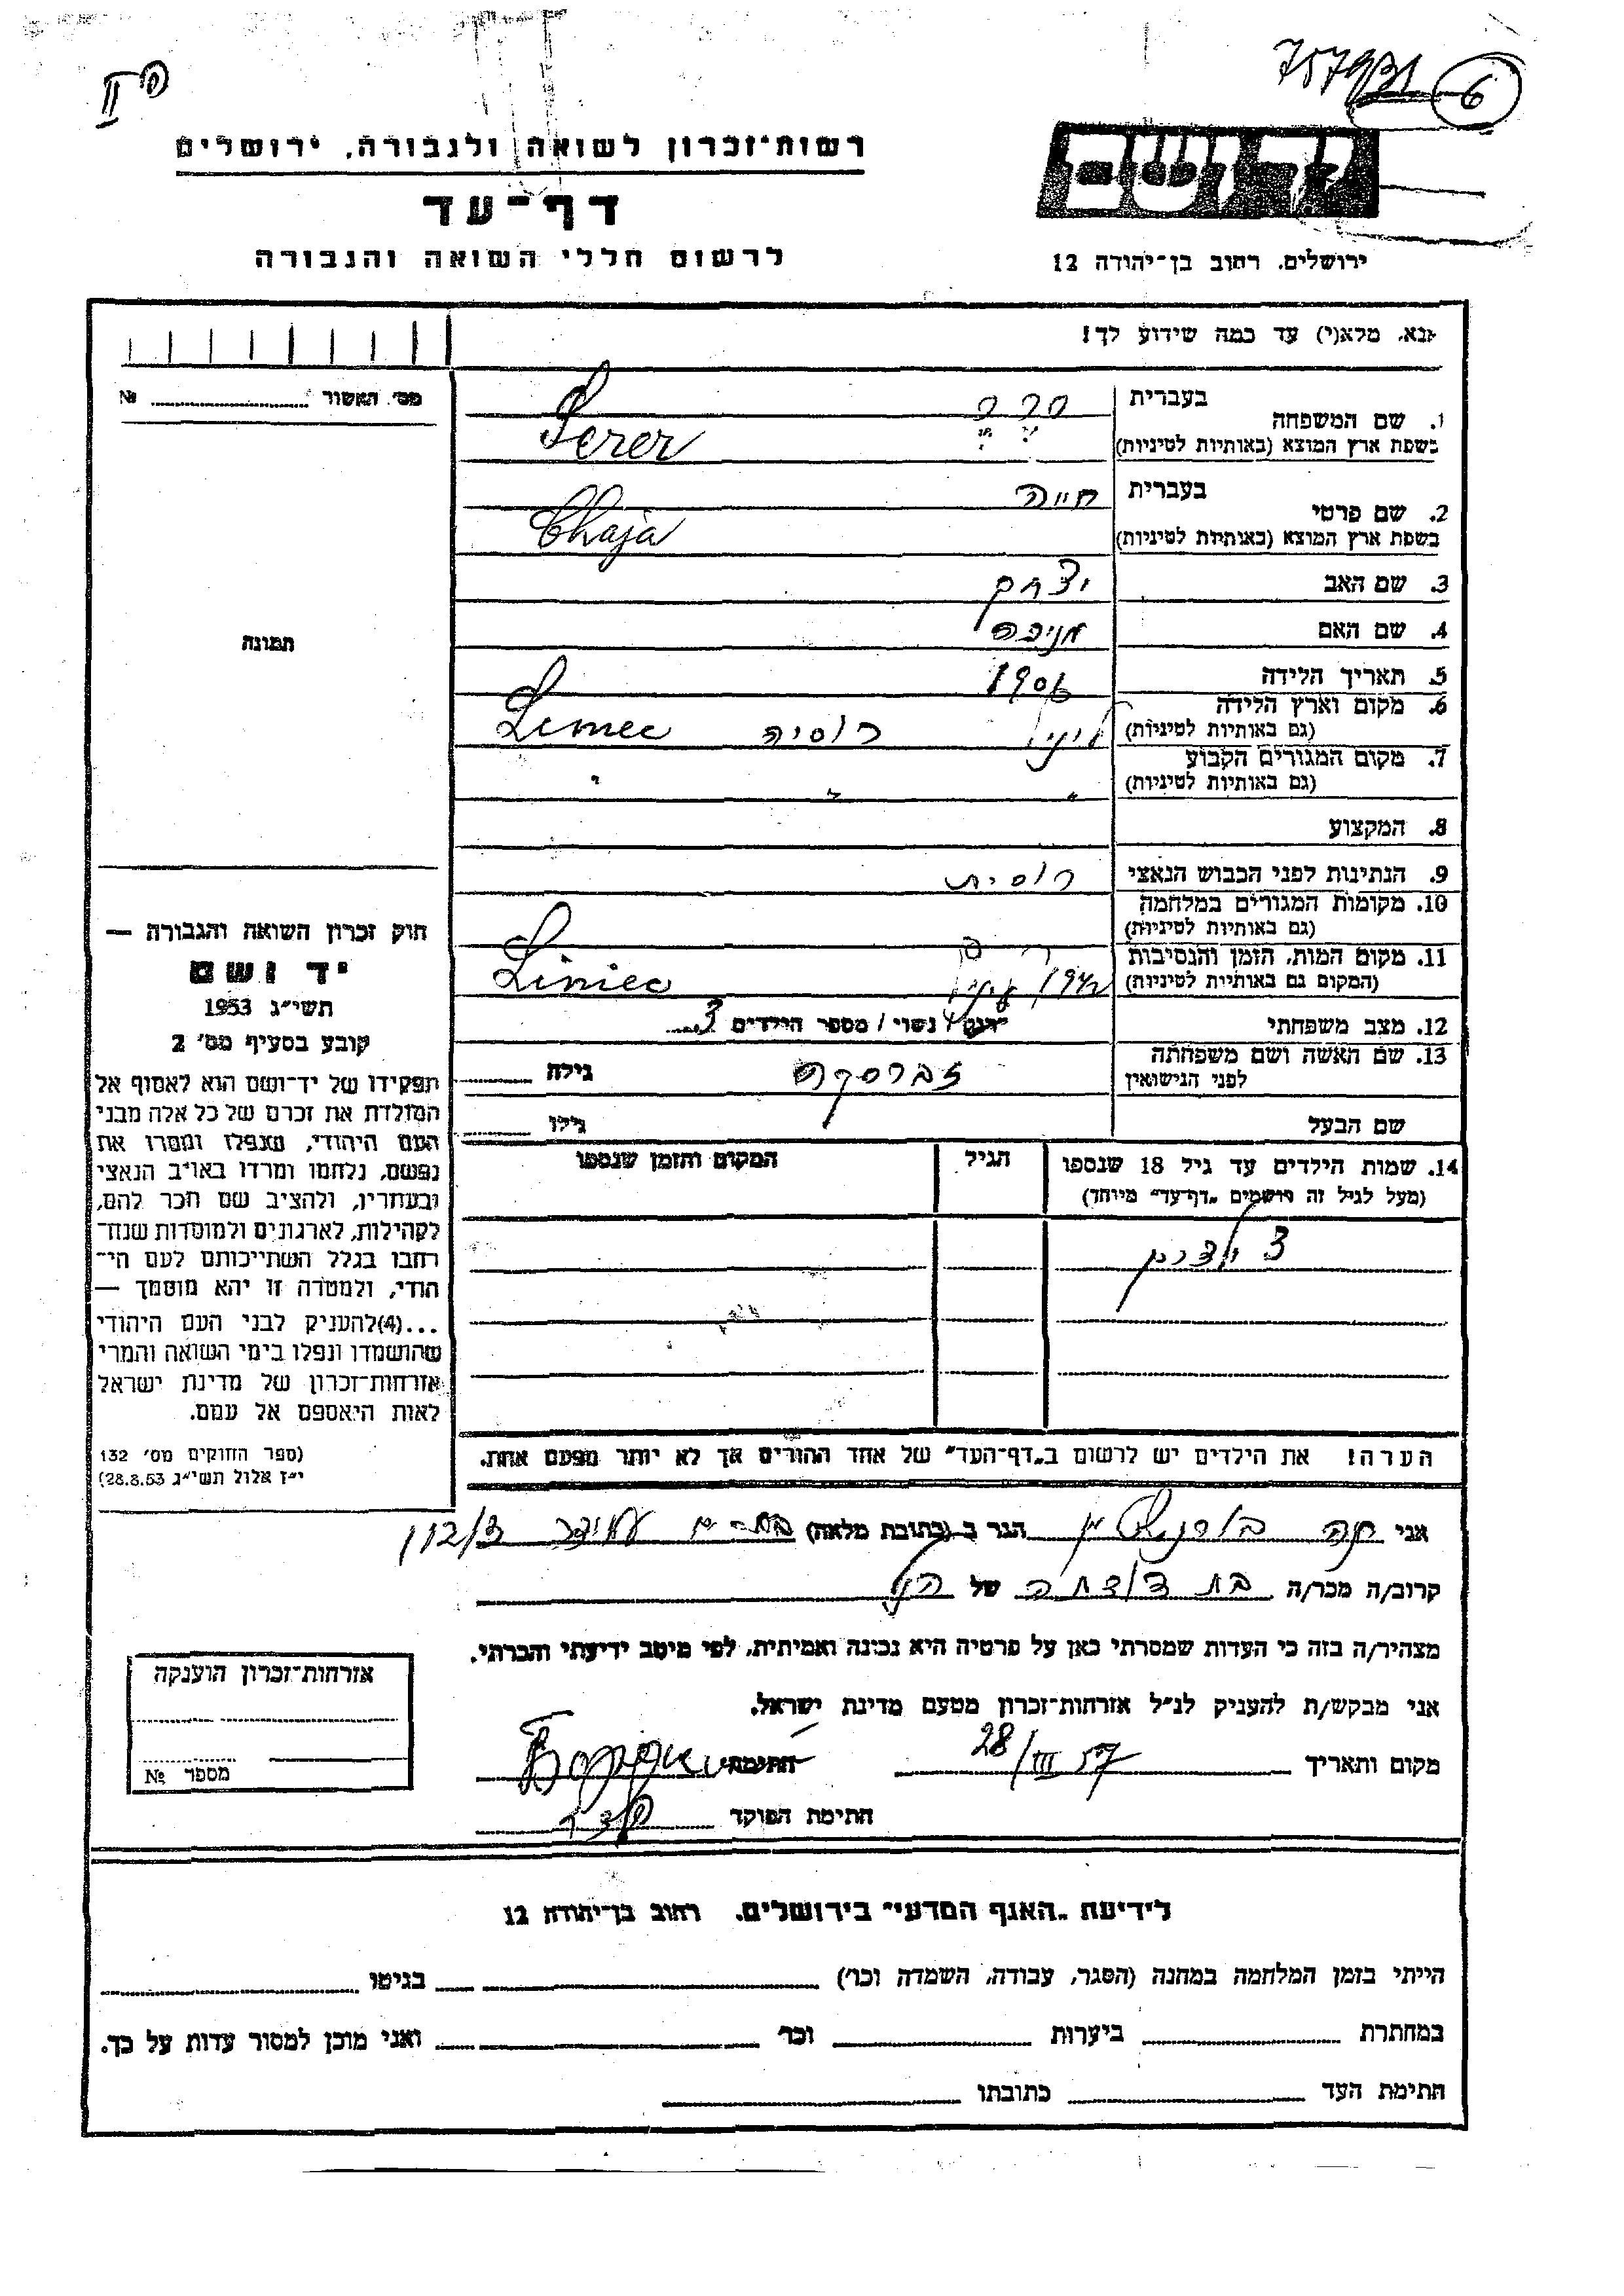 757931 6
רשות־זכרון לשואה ולגבורה, ירושלים
דף־עד
לרשום חללי השואה והגבורה
ידושם
ירושלים, רחוב בן־יהודה 12
נא, מלא(י) עד כמה שידוע לך!
מס׳ האשור №
1. שם המשפחה
בעברית סרר
בשפת ארץ המוצא (באותיות לטיניות) Serer
2. שם פרטי
בעברית חייה
בשפת ארץ המוצא (באותיות לטיניות) Chaja
3. שם האב יצחק
4. שם האם
5. תאריך הלידה
6. מקום וארץ הלידה
(גם באותיות לטיניות) רוסיה
7. מקום המגורים הקבוע
(גם באותיות לטיניות) " " "
8. המקצוע
9. הנתינות לפני הכבוש הנאצי רוסית
10. מקומות המגורים במלחמה
(גם באותיות לטיניות)
11. מקום המות, הזמן והנסיבות
(המקום גם באותיות לטיניות) Liniec
12. מצב משפחתי נשוי / מספר הילדים 3
13. שם האשה ושם משפחתה
לפני הנישואין גילה
שם הבעל גילו
14. שמות הילדים עד גיל 18 שנספו
(מעל לגיל זה רושמים „דף־עד" מיוחד)
הגיל
המקום והזמן שנספו
3 ילדים
הערה! את הילדים יש לרשום ב„דף־העד" של אחד ההורים אך לא יותר מפעם אחת.
תמונה
חוק זכרון השואה והגבורה —
יד ושם
תשי״ג 1953
קובע בסעיף מס׳ 2
תפקידו של יד־ושם הוא לאסוף אל
המולדת את זכרם של כל אלה מבני
העם היהודי, שנפלו ומסרו את
נפשם, נלחמו ומרדו באויב הנאצי
ובעוזריו, ולהציב שם וזכר להם,
לקהילות, לארגונים ולמוסדות שנח־
רבו בגלל השתייכותם לעם הי־
הודי, ולמטרה זו יהא מוסמך —
...(4) להעניק לבני העם היהודי
שהושמדו ונפלו בימי השואה והמרי
אזרחות־זכרון של מדינת ישראל
לאות היאספם אל עמם.
(ספר החוקים מס׳ 132
י״ז אלול תשי״ג 28.8.53)
אני חנה הגר ב (כתובת מלאה) בת-ים עמידר
קרוב/ה מכר/ה בת דודה של הנ״ל
מצהיר/ה בזה כי העדות שמסרתי כאן על פרטיה היא נכונה ואמיתית, לפי מיטב ידיעתי והכרתי.
אני מבקש/ת להעניק לנ״ל אזרחות־זכרון מטעם מדינת ישראל.
מקום ותאריך 28/III 57 חתימה
חתימת הפוקד
אזרחות־זכרון הוענקה
מספר №
לידיעת „האגף המדעי" בירושלים, רחוב בן־יהודה 12
הייתי בזמן המלחמה במחנה (הסגר, עבודה, השמדה וכו׳) בגיטו
במחתרת ביערות וכו׳ ואני מוכן למסור עדות על כך.
חתימת העד כתובתו